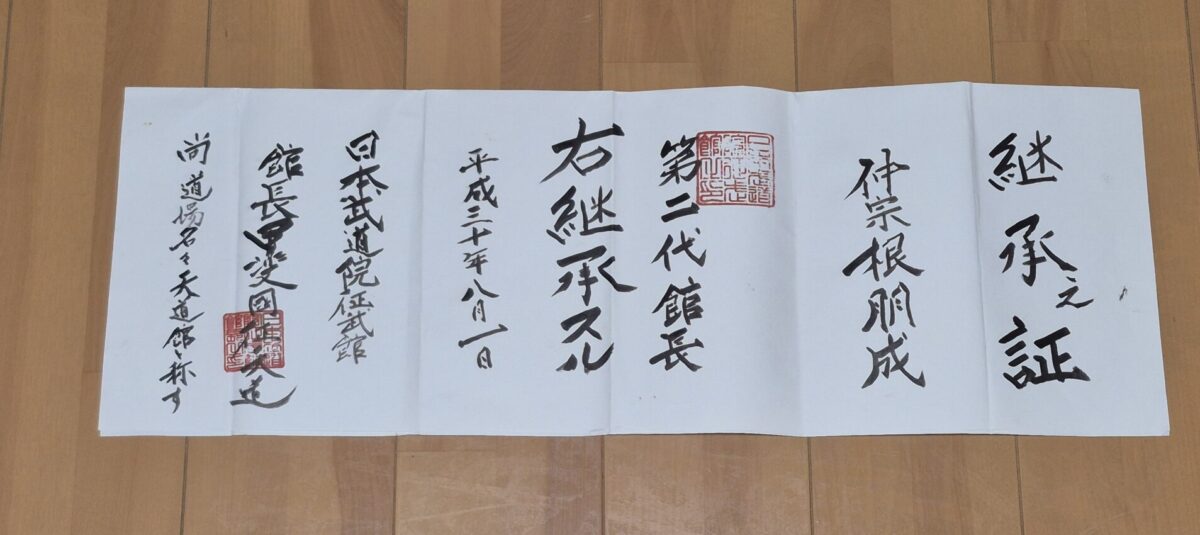 継承之証
仲宗根朋成
第二代館長
右継承スル
平成三十年八月一日
日本武道院征武館
館長甲斐国征天道
尚道場名を天道館と称す